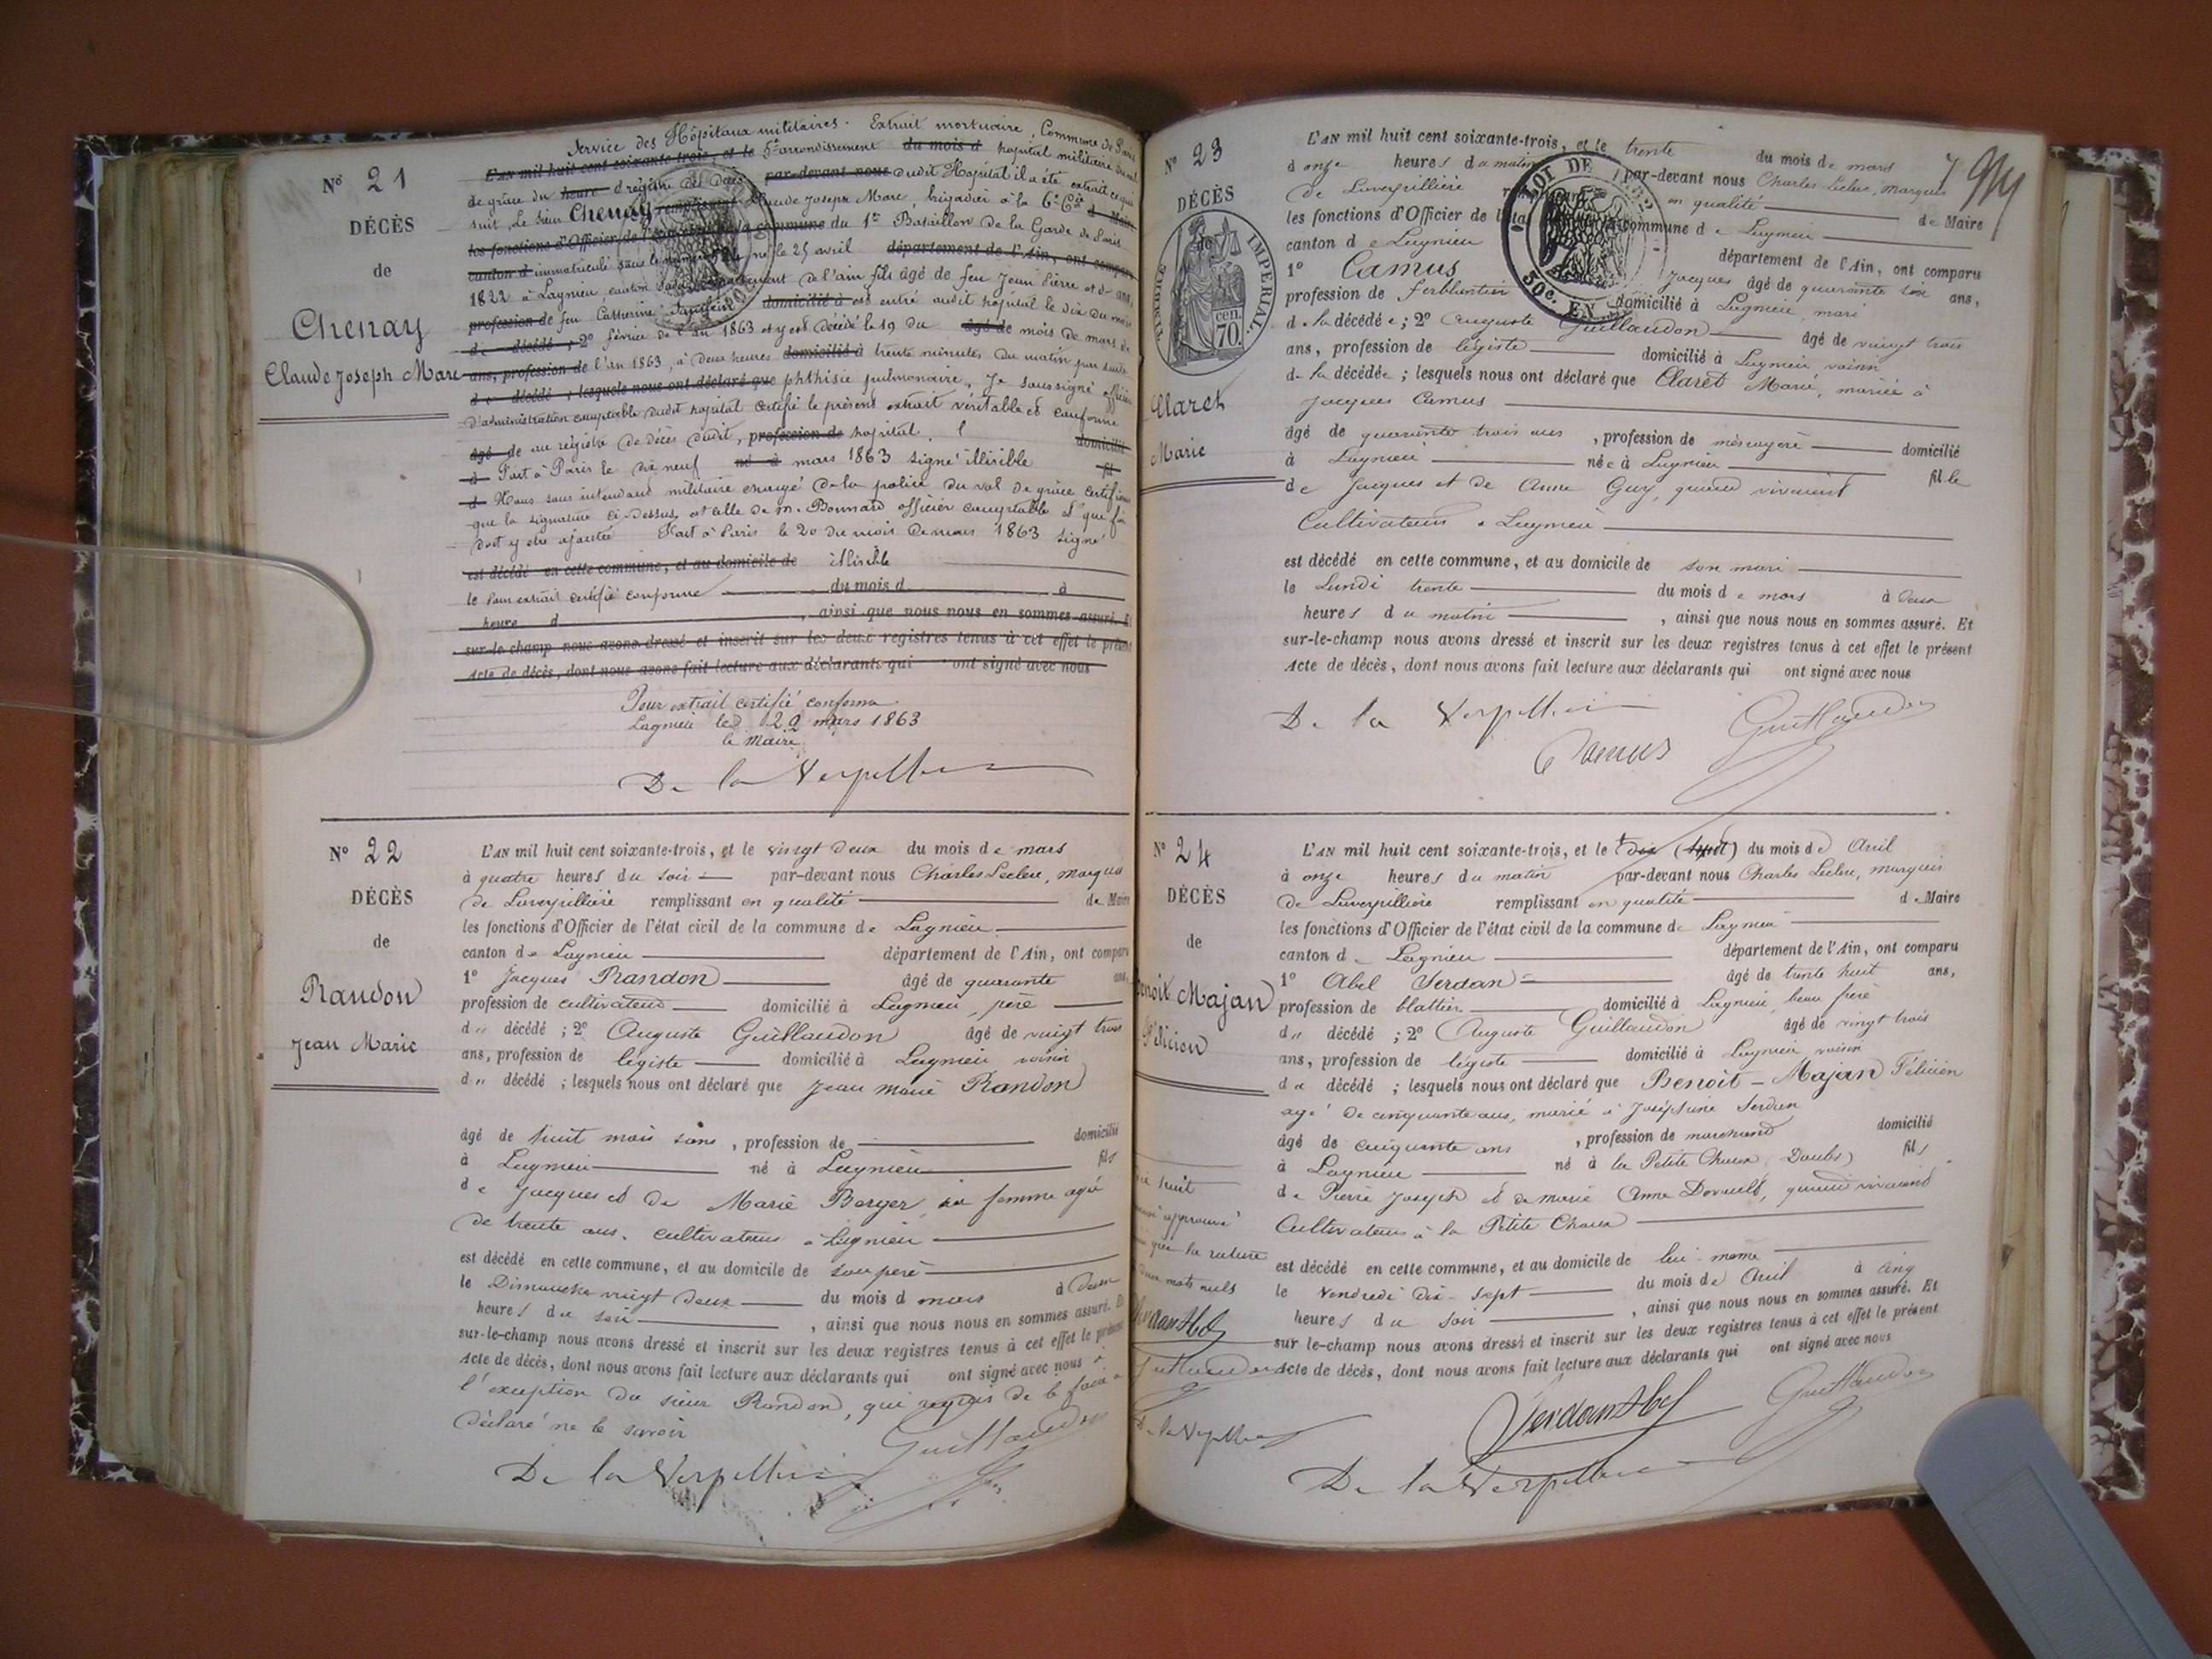 Service des Hôpitaux militaires. Extrait mortuaire, Commune de Paris
L'AN mil huit cent soixante-trois, et le 5e arrondissement du mois d hopital militaire du val
de grâce du heure d registre des décès par-devant nous dudit Hopital il a été extrait ce qui
suit, Le sieur Chenay remplissant Claude Joseph Marc, brigadier à la 6e Cie d Maire
les fonctions d'Officier de l'état civil de la commune du 1er Bataillon de la Garde de Paris
canton d immatriculé sous le numéro né le 25 avril département de l'Ain, ont comparu
1822 à Lagnieu, canton département de l'ain fils âgé de feu Jean Pierre et d ans,
profession de feu Catherine domicilié à est entré audit hopital le dix du mois
de décédé ; 2° février de l'an 1863 et y est décédé le 19 du âgé de mois de mars de
ans, profession de l'an 1863, à deux heures domicilié à trente minutes du matin par suite
d e décédé ; lesquels nous ont déclaré que phthisie pulmonaire, Je soussigné officier
d'administration comptable dudit hopital certifie le présent extrait véritable et conforme
âgé de au registre de décès dudit, profession de hopital. domicilié
à Fait à Paris le dix neuf né à mars 1863 signé illisible fil
d Nous sous intendant militaire chargé de la police du val de grâce certifions
que la signature ci-dessus, est celle de m. Bonnard officier comptable et que foi
doit y être ajoutée Fait à Paris le 20 du mois de mars 1863 signé
est décédé en cette commune, et au domicile de illisible
le Pour extrait certifié conforme du mois d à
heure d , ainsi que nous nous en sommes assuré. Et
sur-le-champ nous avons dressé et inscrit sur les deux registres tenus à cet effet le présent
Acte de décès, dont nous avons fait lecture aux déclarants qui ont signé avec nous
Pour extrait certifié conforme
Lagnieu le 29 mars 1863
le Maire
De la Verpillière
N° 21
DÉCÈS
de
Chenay
Claude Joseph Marc
N° 22
DÉCÈS
de
Randon
Jean Marie
L'AN mil huit cent soixante-trois, et le vingt deux du mois de mars
à quatre heures du soir par-devant nous Charles Leclerc, marquis
de Laverpillière remplissant en qualité de Maire
les fonctions d'Officier de l'état civil de la commune de Lagnieu
canton de Lagnieu département de l'Ain, ont comparu
1° Jacques Randon âgé de quarante ans,
profession de cultivateur domicilié à Lagnieu, père
du décédé ; 2° Auguste Guillaudon âgé de vingt trois
ans, profession de légiste domicilié à Lagnieu voisin
du décédé ; lesquels nous ont déclaré que Jean marie Randon
âgé de huit mois sans , profession de domicilié
à Lagnieu né à Lagnieu fils
de Jacques et de Marie Berger, sa femme agée
de trente ans, cultivateurs à Lagnieu
est décédé en cette commune, et au domicile de son père
le Dimanche vingt deux du mois d mars à Deux
heures du soir , ainsi que nous nous en sommes assuré. Et
sur-le-champ nous avons dressé et inscrit sur les deux registres tenus à cet effet le présent
Acte de décès, dont nous avons fait lecture aux déclarants qui ont signé avec nous à
l'exception du sieur Randon, qui requis de le faire a
déclaré ne le savoir
Guillaudon
De la Verpillière
N° 23
DÉCÈS
de
TIMBRE IMPERIAL.
70. cen.
Claret
Marie
LOI DE
50c. EN
L'AN mil huit cent soixante-trois, et le trente du mois de mars
à onze heures du matin par-devant nous Charles Leclerc, marquis
de Laverpillière en qualité de Maire
les fonctions d'Officier de l'état commune de Lagnieu
canton de Lagnieu département de l'Ain, ont comparu
1° Camus Jacques âgé de quarante six ans,
profession de ferblantier domicilié à Lagnieu, mari
d la décédée ; 2° Auguste Guillaudon âgé de vingt trois
ans, profession de légiste domicilié à Lagnieu, voisin
d la décédée ; lesquels nous ont déclaré que Claret Marie, mariée à
Jacques Camus
âgé de quarante trois ans , profession de ménagère domicilié
à Lagnieu née à Lagnieu fille
de Jacques et de Anne Guy, quand vivaient
Cultivateurs à Lagnieu
est décédé en cette commune, et au domicile de son mari
le Lundi trente du mois de mars à deux
heures du matin , ainsi que nous nous en sommes assuré. Et
sur-le-champ nous avons dressé et inscrit sur les deux registres tenus à cet effet le présent
Acte de décès, dont nous avons fait lecture aux déclarants qui ont signé avec nous
De la Verpillière
Guillaudon
Camus
N° 24
DÉCÈS
de
Benoit Majan
Félicien
L'AN mil huit cent soixante-trois, et le dix (sept) du mois de Avril
à onze heures du matin par-devant nous Charles Leclerc, marquis
de Laverpillière remplissant en qualité de Maire
les fonctions d'Officier de l'état civil de la commune de Lagnieu
canton de Lagnieu département de l'Ain, ont comparu
1° Abel Verdan âgé de trente huit ans,
profession de blattier domicilié à Lagnieu, beau frère
du décédé ; 2° Auguste Guillaudon âgé de vingt trois
ans, profession de légiste domicilié à Lagnieu voisin
du décédé ; lesquels nous ont déclaré que Benoit - Majan Félicien
agé de cinquante ans, marié à Joséphine Verdan
âgé de cinquante ans , profession de marchand domicilié
à Lagnieu né à la Petite Chaux (Doubs) fils
de Pierre Joseph et de marie Anne quand vivaient
Cultivateurs à la Petite Chaux
est décédé en cette commune, et au domicile de lui-même
le Vendredi dix-sept du mois de Avril à cinq
heures du soir , ainsi que nous nous en sommes assuré. Et
sur le-champ nous avons dressé et inscrit sur les deux registres tenus à cet effet le présent
Acte de décès, dont nous avons fait lecture aux déclarants qui ont signé avec nous
dix huit
approuvé
que la rature
deux mots nuls
Verdan Abel
Guillaudon
De la Verpillière
Verdan Abel
Guillaudon
De la Verpillière